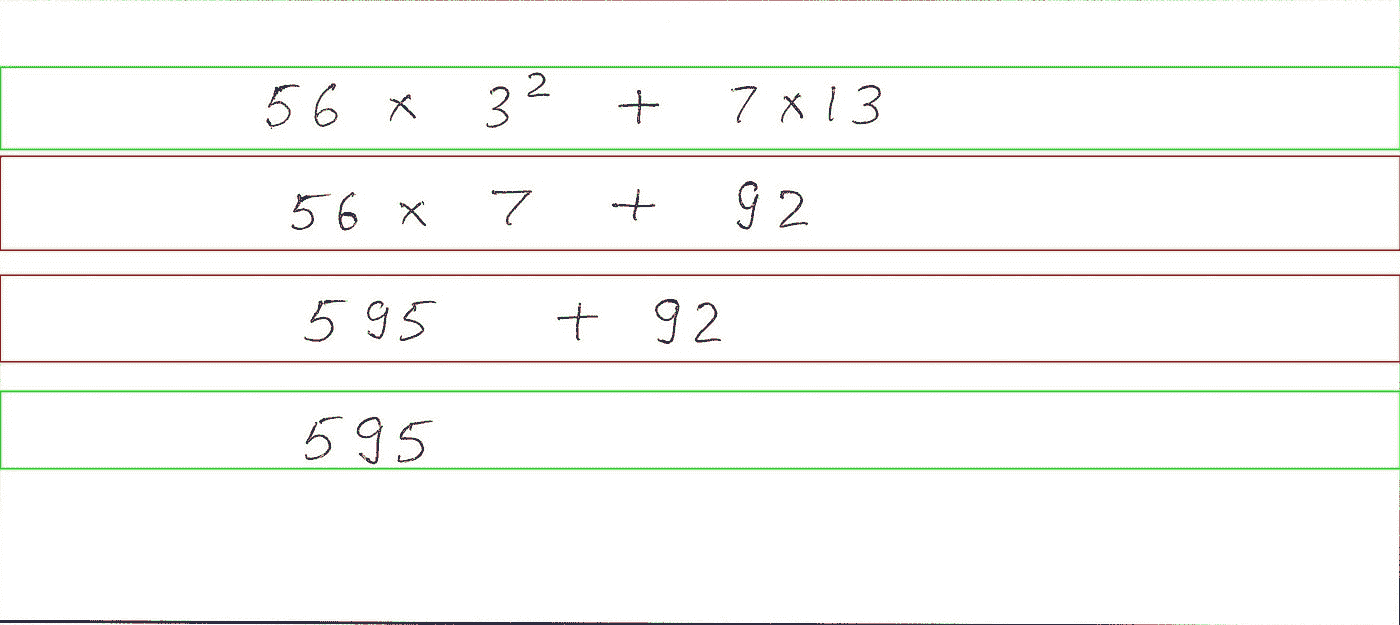 56 × 3² + 7×13
56 × 7 + 92
595 + 92
595